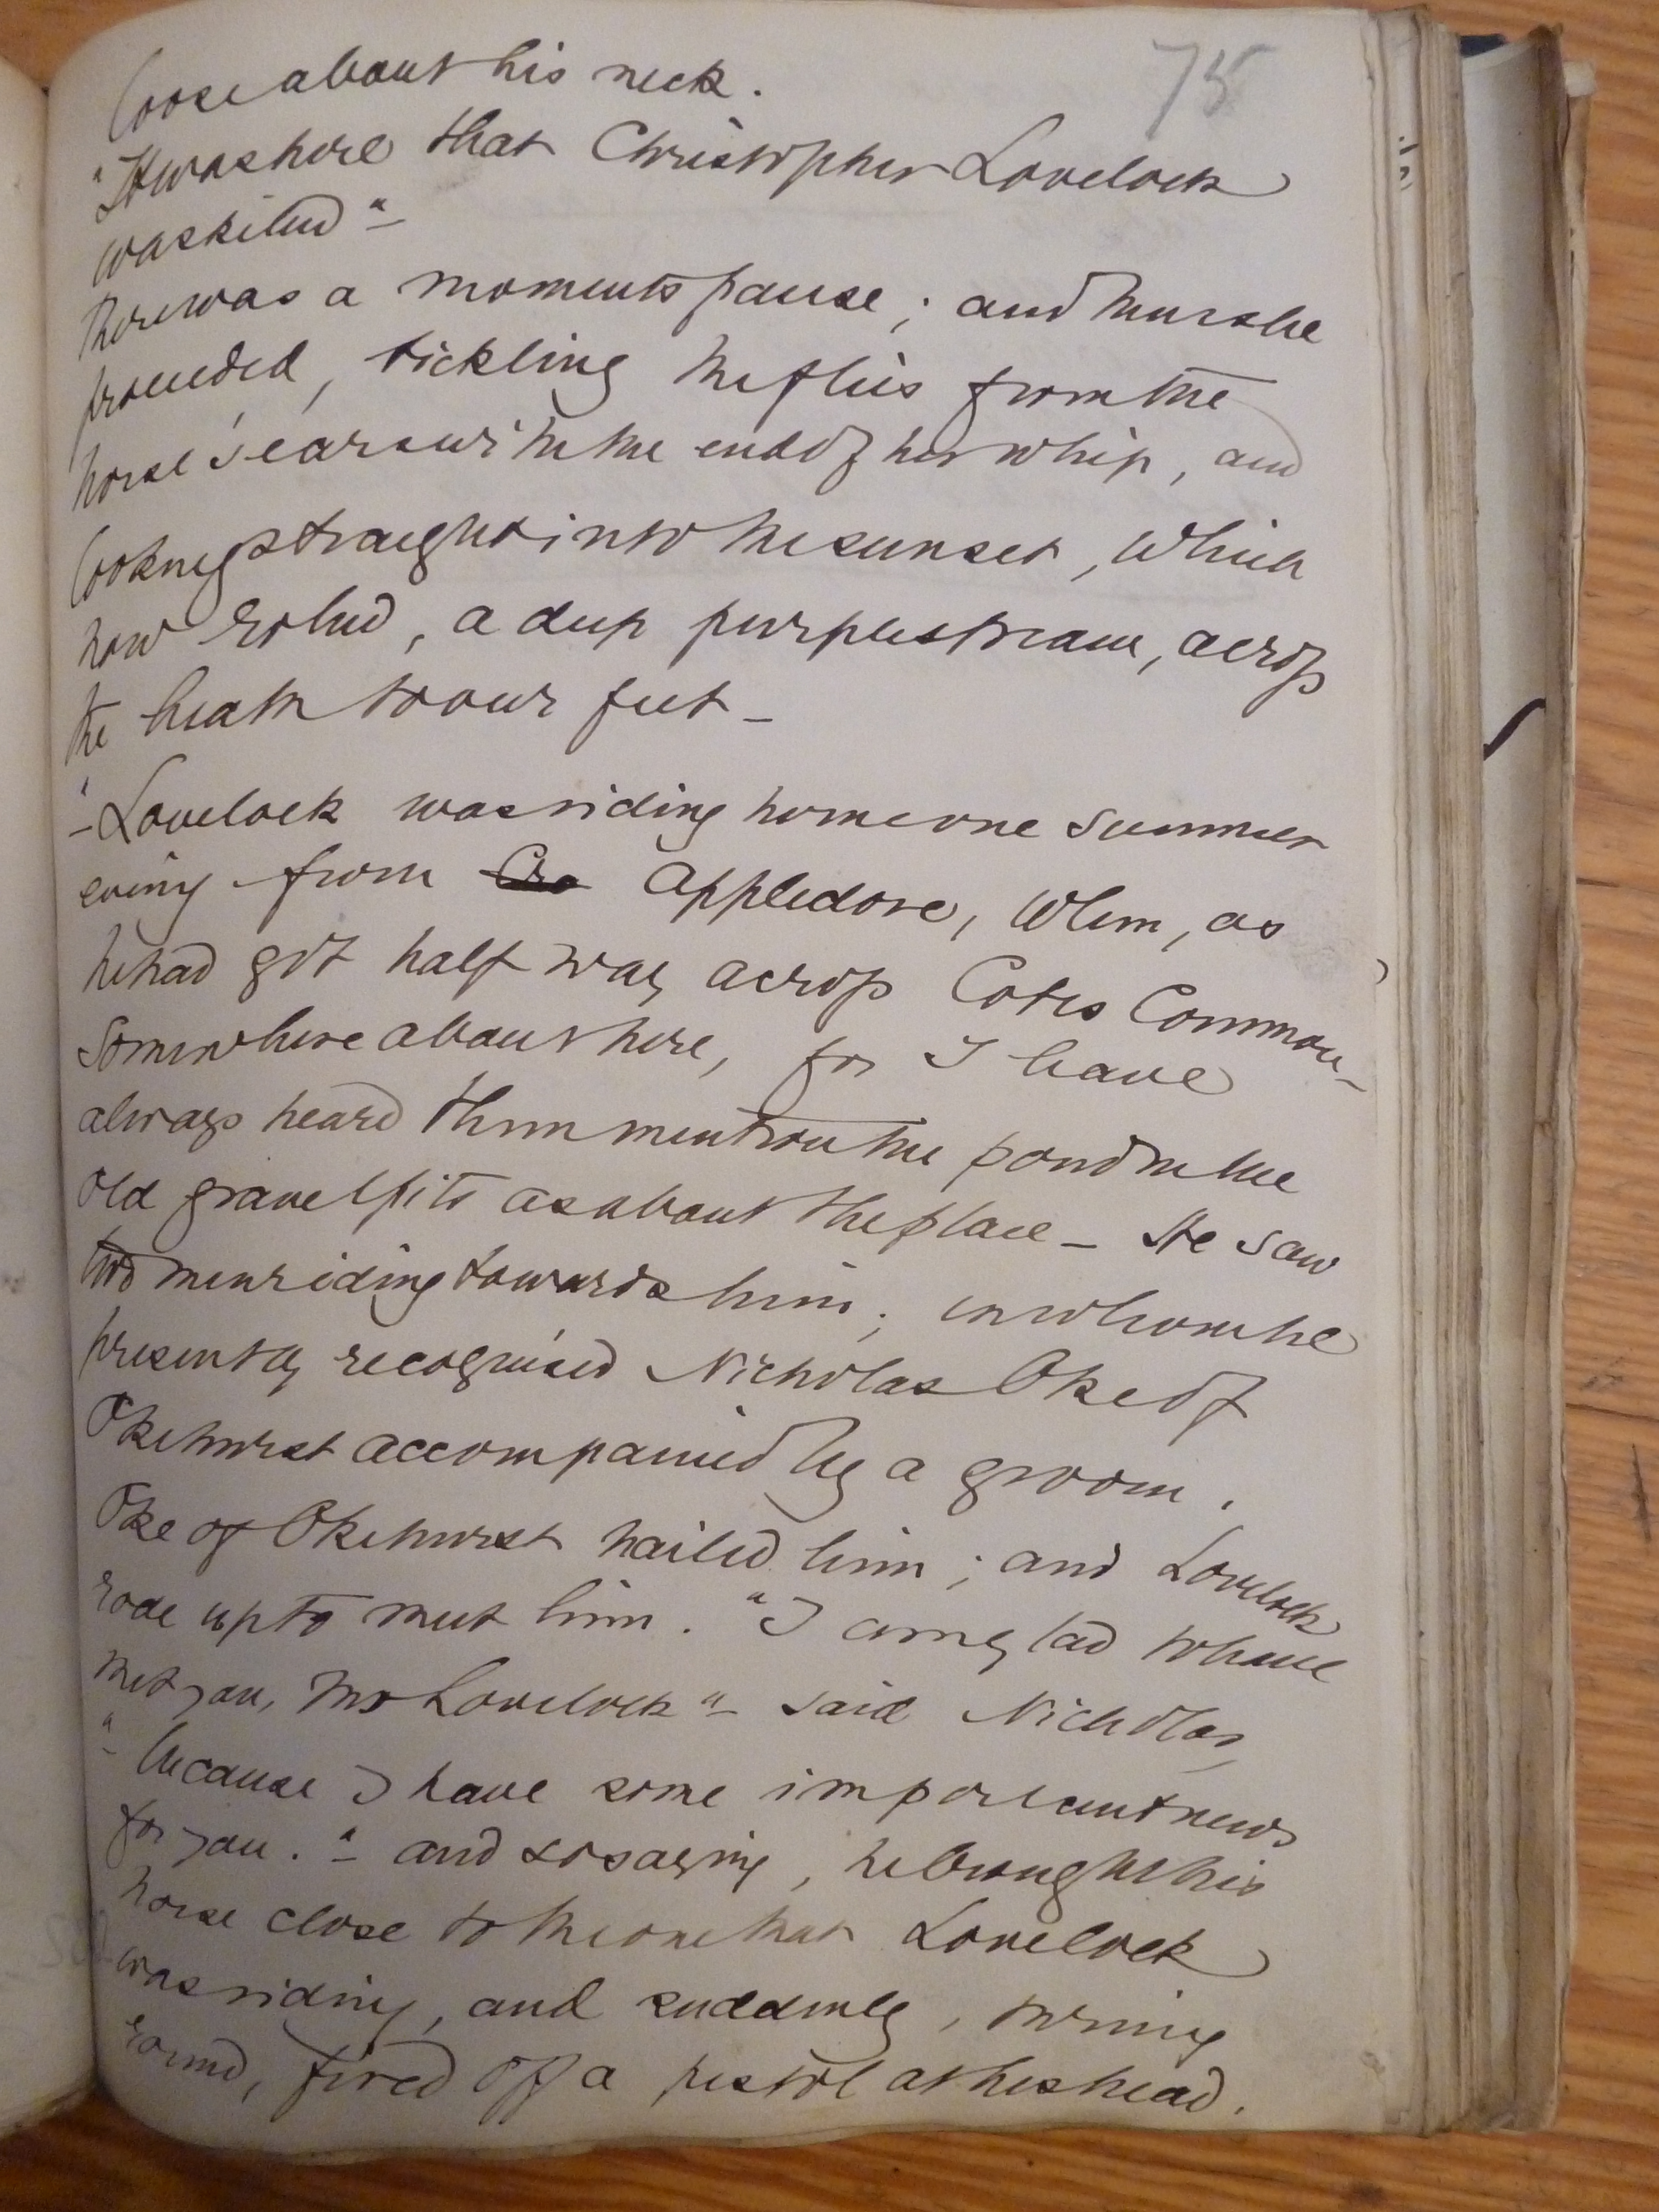 75
loose about his neck.
"It was here that Christopher Lovelock
was killed" –
There was a moments pause; and then she
proceeded, tickling the flies from the
horse's ears with the end of her whip, and
looking straight into the sunset, which
now rolled, a deep purple stream, across
the heath to our feet –
"– Lovelock was riding home one summer
evening from Appledore, when, as
he had got half way across Cotes Common –
somewhere about here, for I have
always heard them mention the pond in the
old gravelpits as about the place – He saw
two men riding towards him; in whom he
presently recognised Nicholas Oke of
Okehurst accompanied by a groom.
Oke of Okehurst hailed him; and Lovelock
rode up to meet him. "I am glad to have
met you, Mr Lovelock" – said Nicholas,
"– because I have some important news
for you." – and so saying, he brought his
horse close to the one that Lovelock
was riding, and suddenly, turning
round, fired off a pistol at his head.